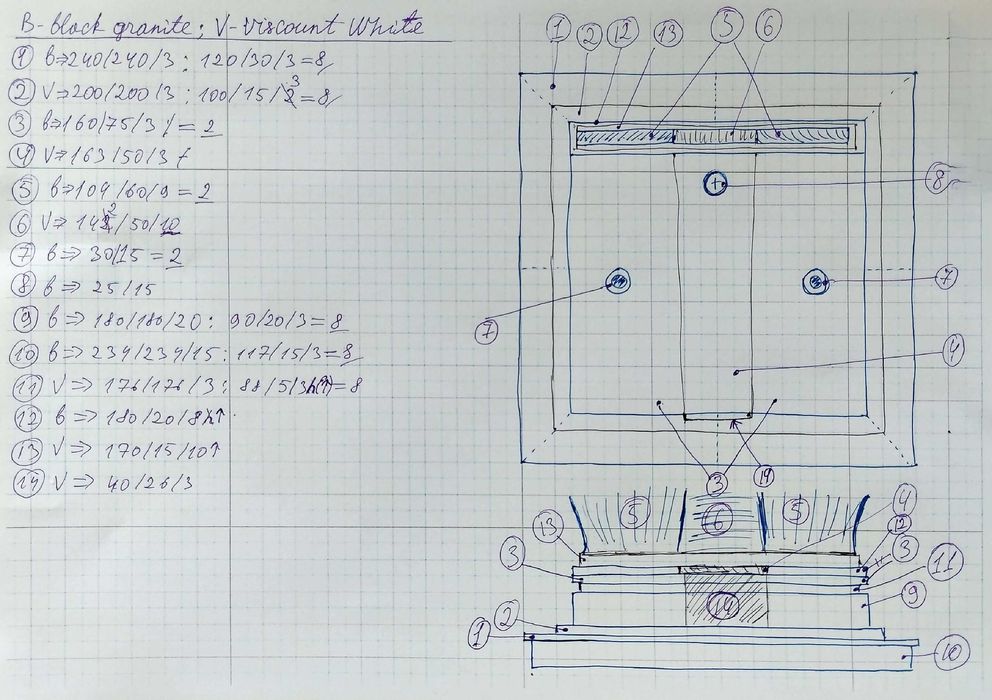 B-black granite; V-Viscount White
① B⇒240/240/3 : 120/30/3=8
② V⇒200/200/3 : 100/15/3=8
③ B⇒160/75/3 = 2
④ V⇒163/50/3
⑤ B⇒104/60/9 = 2
⑥ V⇒ 142/50/10
⑦ B⇒ 30/15 = 2
⑧ B⇒ 25/15
⑨ B⇒ 180/180/20 : 90/20/3=8
⑩ B⇒ 234/234/15 : 117/15/3=8
⑪ V⇒ 176/176/3 ; 88/5/3h(↑)=8
⑫ B⇒ 180/20/8h↑
⑬ V⇒ 170/15/10↑
⑭ V⇒ 40/26/3
① ② ⑫ ⑬ ⑤ ⑥
⑧
⑦ ⑦
④
③ ⑭
⑤ ⑥ ⑤ ④
⑬ ⑫
③ ③
⑪
⑭ ⑨
②
① ⑩